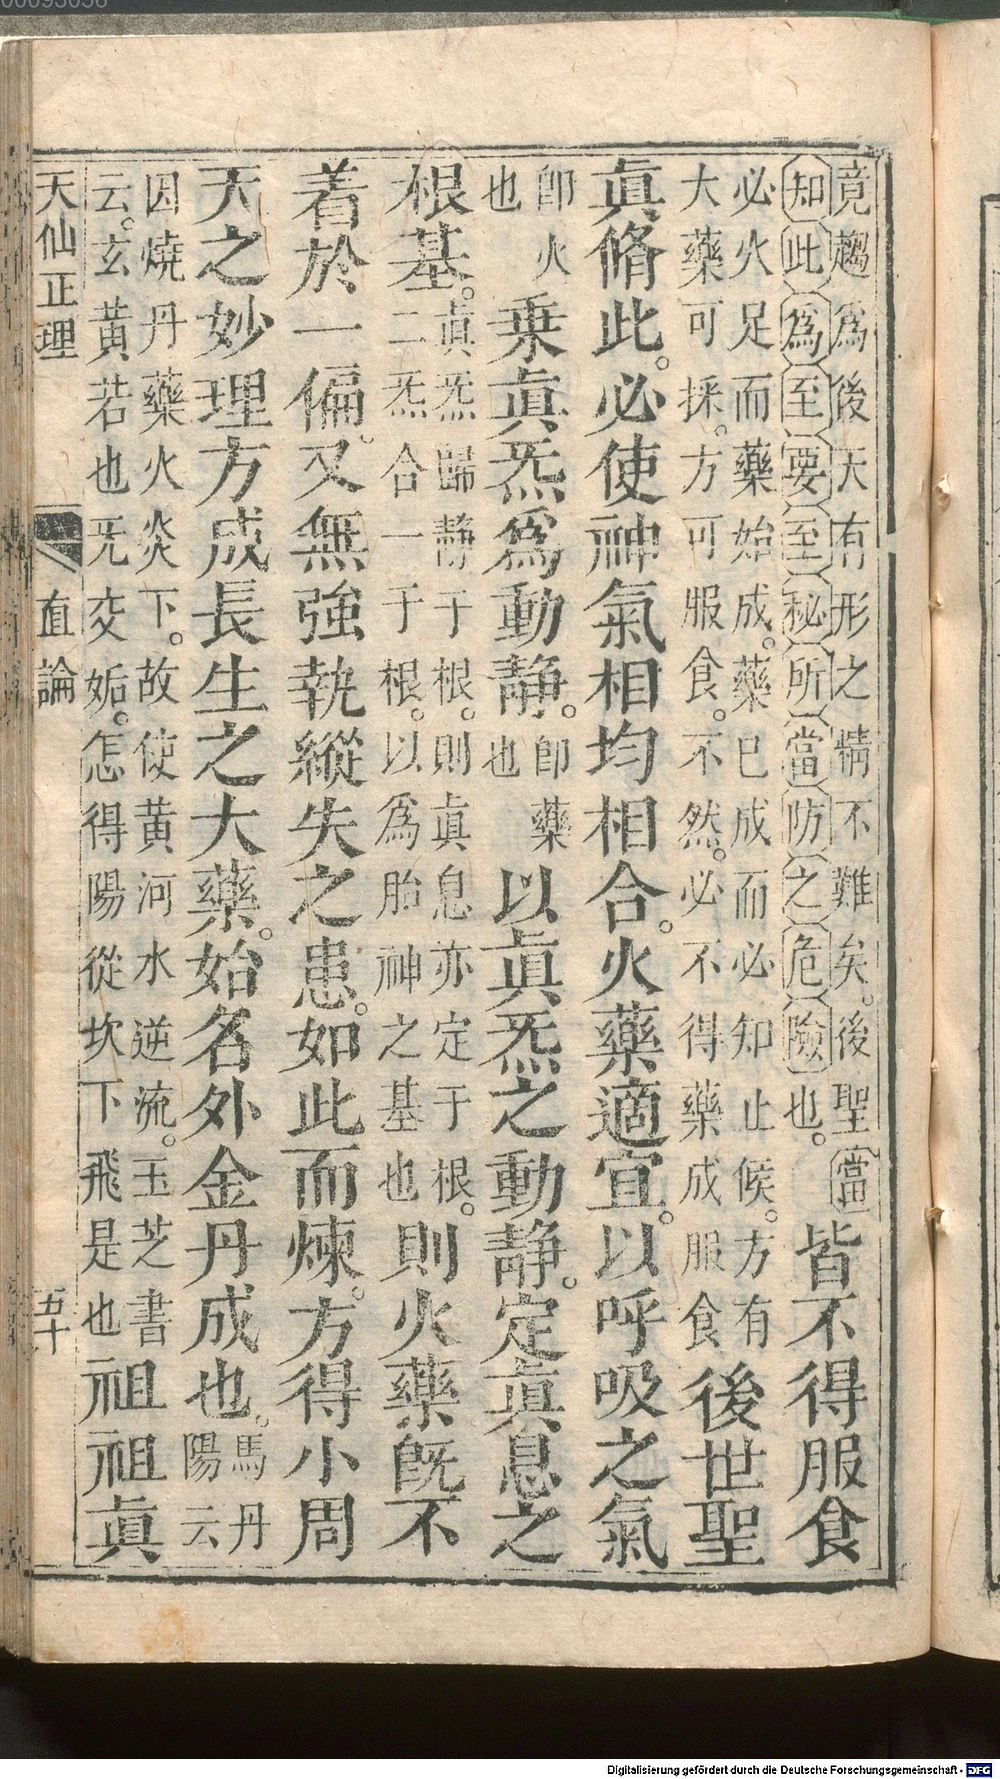 00093056
竟趨爲後天有形之精不難矣。後聖當
知此爲至要至秘所當防之危險也。
皆不得服食
必火足而藥始成。藥已成而必知止候。方有
大藥可採。方可服食。不然。必不得藥成服食
後世聖
眞脩此。必使神氣相均相合。火藥適宜。以呼吸之氣
卽火
也
乗眞炁爲動靜。
卽藥
也
以眞炁之動靜。定眞息之
根基。
眞炁歸靜于根。則眞息亦定于根。
二炁合一于根。以爲胎神之基也
則火藥旣不
着於一偏。又無強執縱失之患。如此而煉。方得小周
天之妙理方成長生之大藥。始名外金丹成也。
馬丹
陽云
因燒丹藥火炎下。故使黄河水逆流。玉芝書
云。玄黃若也旡交姤。怎得陽從坎下飛是也
祖祖眞
天仙正理
直論
五十
Digitalisierung gefördert durch die Deutsche Forschungsgemeinschaft - DFG